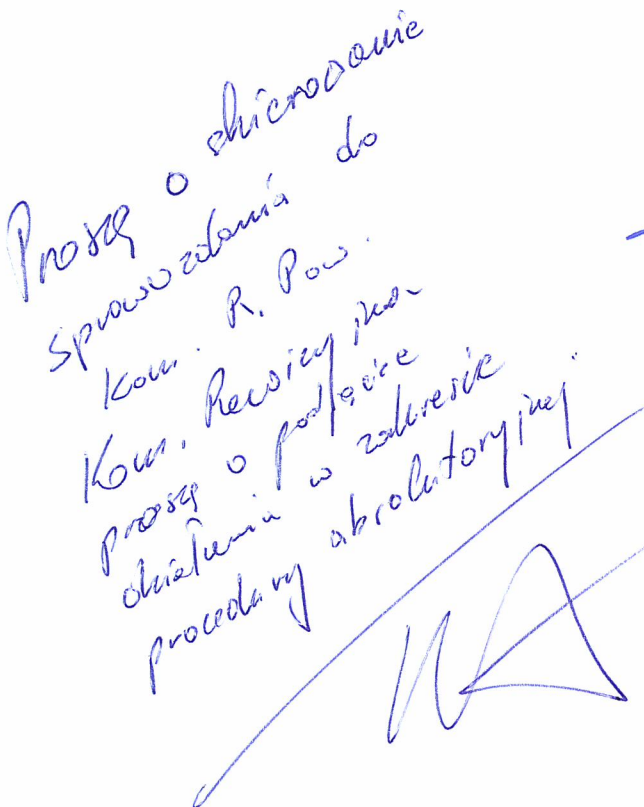 Proszę o skierowanie
sprawozdania do
Kom. R. Pow.
Kom. Rewizyjna
proszę o podjęcie
działania w zakresie
procedury absolutoryjnej.